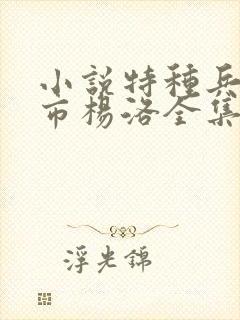 小說特種兵
市楊洛全集
浮光錦